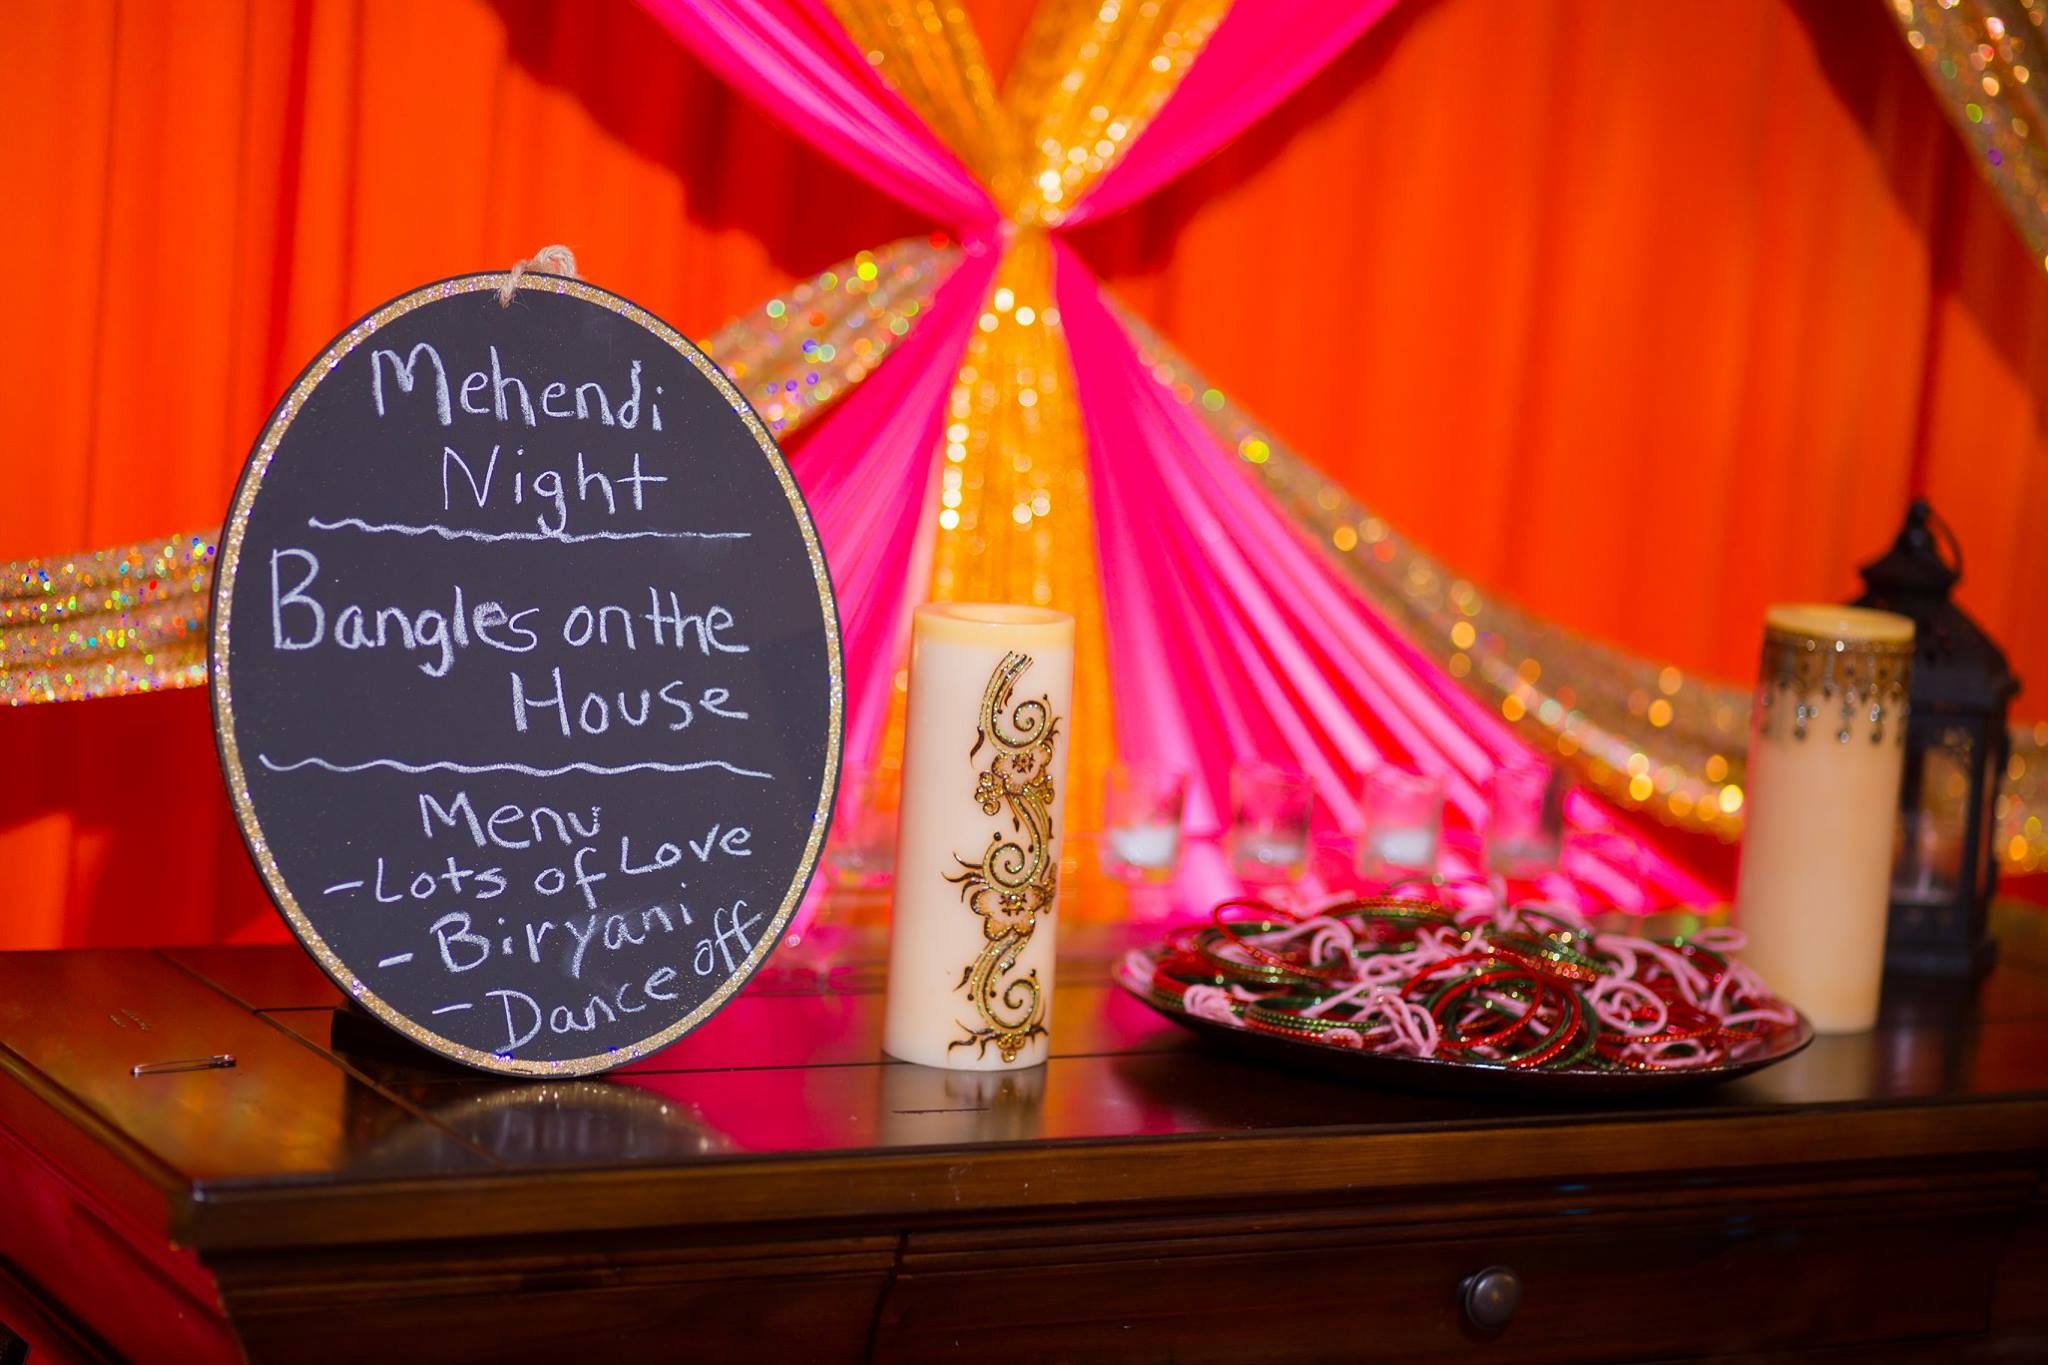 Mehendi
Night
Bangles on the
House
Menu
- Lots of Love
- Biryani
- Dance off